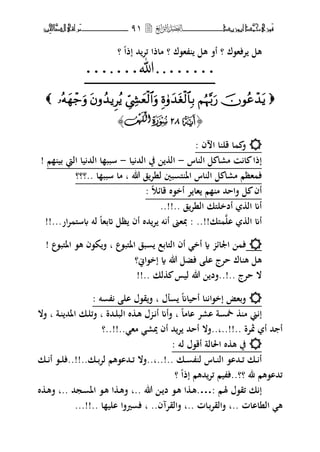 ٩١
هل يرفعوك ؟ أو هل ينفعوك ؟ ماذا تريد إذاً ؟
........الله.......
﴿ يَدْعُونَ رَبَّهُم بِالْغَدَاةِ وَالْعَشِيِّ يُرِيدُونَ وَجْهَهُ ﴾
﴿٢٨ سورة الكهف﴾
وكما قلنا الآن :
إذا كانت مشاكل الناس – الذين في الدنيا – سببها الدنيا التي بينهم !
فمعظم مشاكل الناس المنتسبين لطريق الله ، ما سببها ..؟؟؟
أن كل واحد منهم يعاير أخوه قائلاً :
أنا الذي أدخلتك الطريق ..!!..
أنا الذي علَّمتك!!.. : بمعنى أنه يريده أن يظل تابعاً له باستمرار...!!
فمن الجائز يا أخي أن التابع يسبق المتبوع ، ويكون هو المتبوع !
هل هناك حرج على فضل الله يا إخواني؟
لا حرج ..!!..ودين الله ليس كذلك ..!!
وبعض إخواننا أحياناً يسأل ، ويقول على نفسه :
إنني منذ خمسة عشر عاماً ، وأنا أنزل هذه البلدة ، وتلك المدينة ، ولا
أجد أي ثمرة ..!!..،..ولا أحد يريد أن يمشي معي..!!..؟
في هذه الحالة أقول له :
أنك تدعو الناس لنفسك ..!!..،..ولا تدعوهم لربك..!!..فلو أنك
تدعوهم لله ؟؟..ففيم تريدهم إذاً ؟
إنك تقول لهم :....هذا هو دين الله ..، وهذا هو المسجد ..، وهذه
هي الطاعات ..، والقربات ..، والقرآن.. ، فسيروا عليها ..!!...